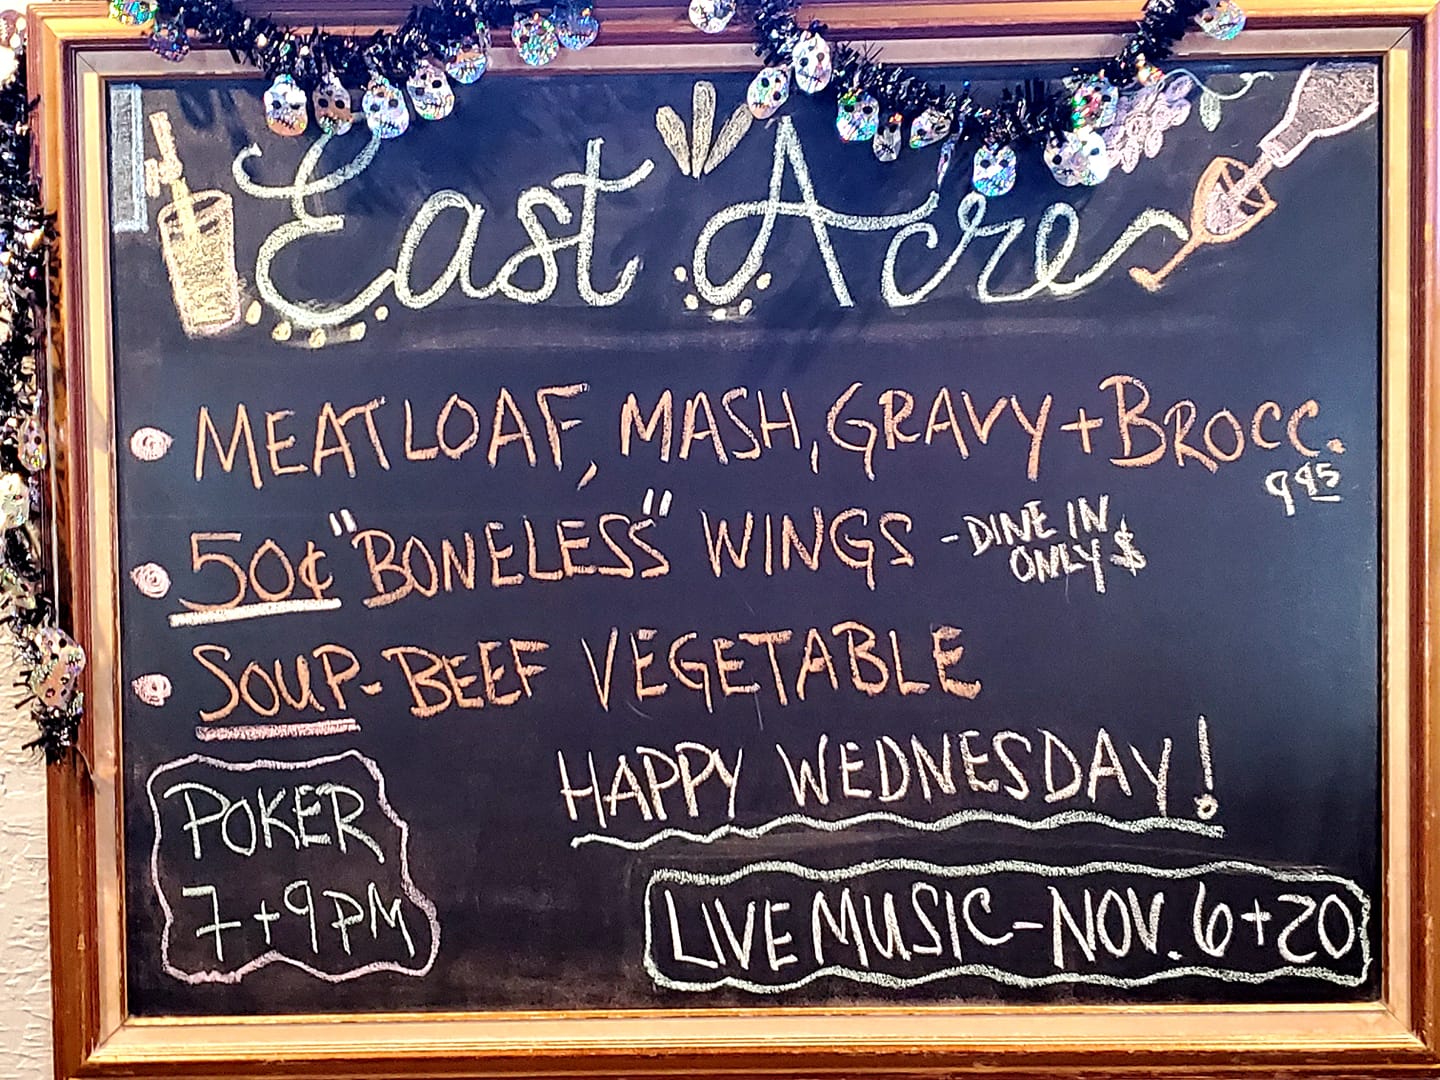 East Acre
MEATLOAF, MASH, GRAVY + BROCC.
9.95
50¢ "BONELESS" WINGS - DINE IN
ONLY $
SOUP - BEEF VEGETABLE
HAPPY WEDNESDAY!
POKER
7 + 9 PM
LIVE MUSIC - NOV. 6 + 20